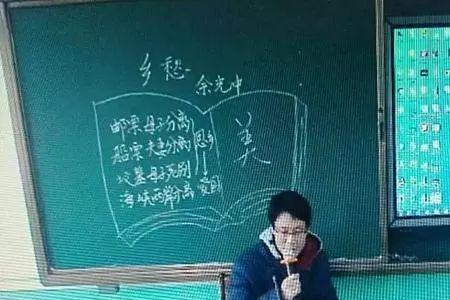 乡愁
余光中
邮票母子分离
船票夫妻分离
坟墓母子死别
海峡两岸分离
思乡
爱国
美